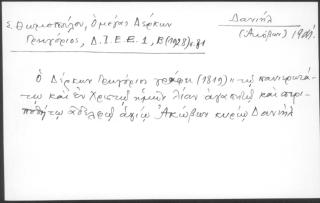 Σ. Θωμοπούλου, Ὁ μέγας Δέρκων
Γρηγόριος, Δ.Ι.Ε.Ε. 1, Β (1928) σ. 81
Δανιήλ
(Ἀκόβων) 1901.
Ὁ Δέρκων Γρηγόριος γράφει (1819) "τῷ πανιερωτά-
τῳ καὶ ἐν Χριστῷ ἡμῶν λίαν ἀγαπητῷ καὶ περι-
ποθήτῳ ἀδελφῷ ἁγίῳ Ἀκόβων κυρίῳ Δανιήλ